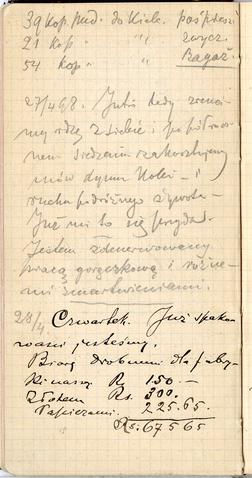 39 kop. pud. do Kielc. pośpiesz.
21 kop " " zwycz.
54 kop " " Bagaż.
27/4 68. Jutro tedy zrzuci
my rdzę z siebie i po półrocz
nem siedzeniu zakosztujemy
znów dymu kolei — i
ruchu podróżnego żywota —
Już mi to się przyda.
Jestem zdenerwowany
pracą gorączkową i różne
mi zmartwieniami.
28/4 Czwartek. Już spako
wani jesteśmy.
Biorę drobnemi dla fabry
Ki naszej Rs 150. —
Złotem Rs. 300.
Papierami. 225.65.
Rs. 675 65